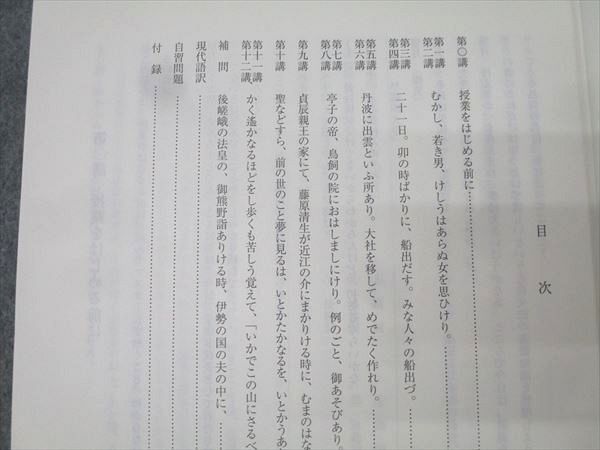 目次
第〇講　授業をはじめる前に…………
第一講
第二講　むかし、若き男、けしうはあらぬ女を思ひけり。…………
第三講
第四講　二十一日。卯の時ばかりに、船出だす。みな人々の船出づ。…………
第五講
第六講　丹波に出雲といふ所あり。大社を移して、めでたく作れり。…………
第七講
第八講　亭子の帝、鳥飼の院におはしましにけり。例のごと、御あそびあり。
第九講　貞辰親王の家にて、藤原清生が近江の介にまかりける時に、むまのはな
第十講　聖などすら、前の世のこと夢に見るは、いとかたかなるを、いとかうあ
第十一講
第十二講　かく遙かなるほどをし歩くも苦しう覚えて、「いかでこの山にさるべ
補問　後嵯峨の法皇の、御熊野詣ありける時、伊勢の国の夫の中に、……
現代語訳…………
自習問題…………
付録…………